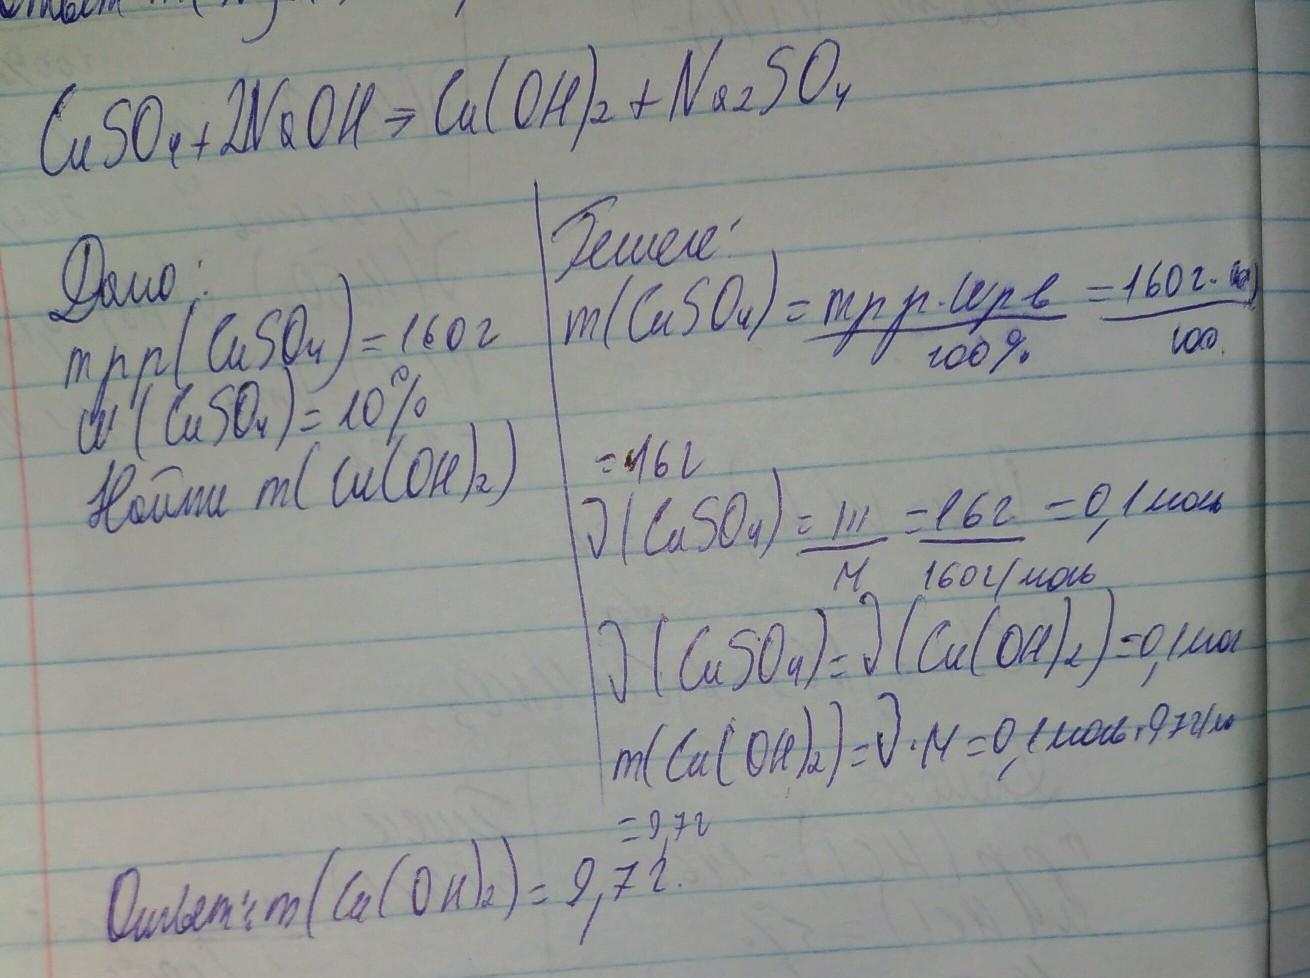 CuSO4+2NaOH→Cu(OH)2+Na2SO4
Дано:
mрр(CuSO4)=160г
ω(CuSO4)=10%
Найти m(Cu(OH)2)
Решение:
m(CuSO4)=mрр·ωрв/100%=160г·/100
=16г
ν(CuSO4)=m/M=16г/160г/моль=0,1моль
ν(CuSO4)=ν(Cu(OH)2)=0,1мол
m(Cu(OH)2)=ν·M=0,1моль·97г/мо
=9,7г
Ответ: m(Cu(OH)2)=9,7г.